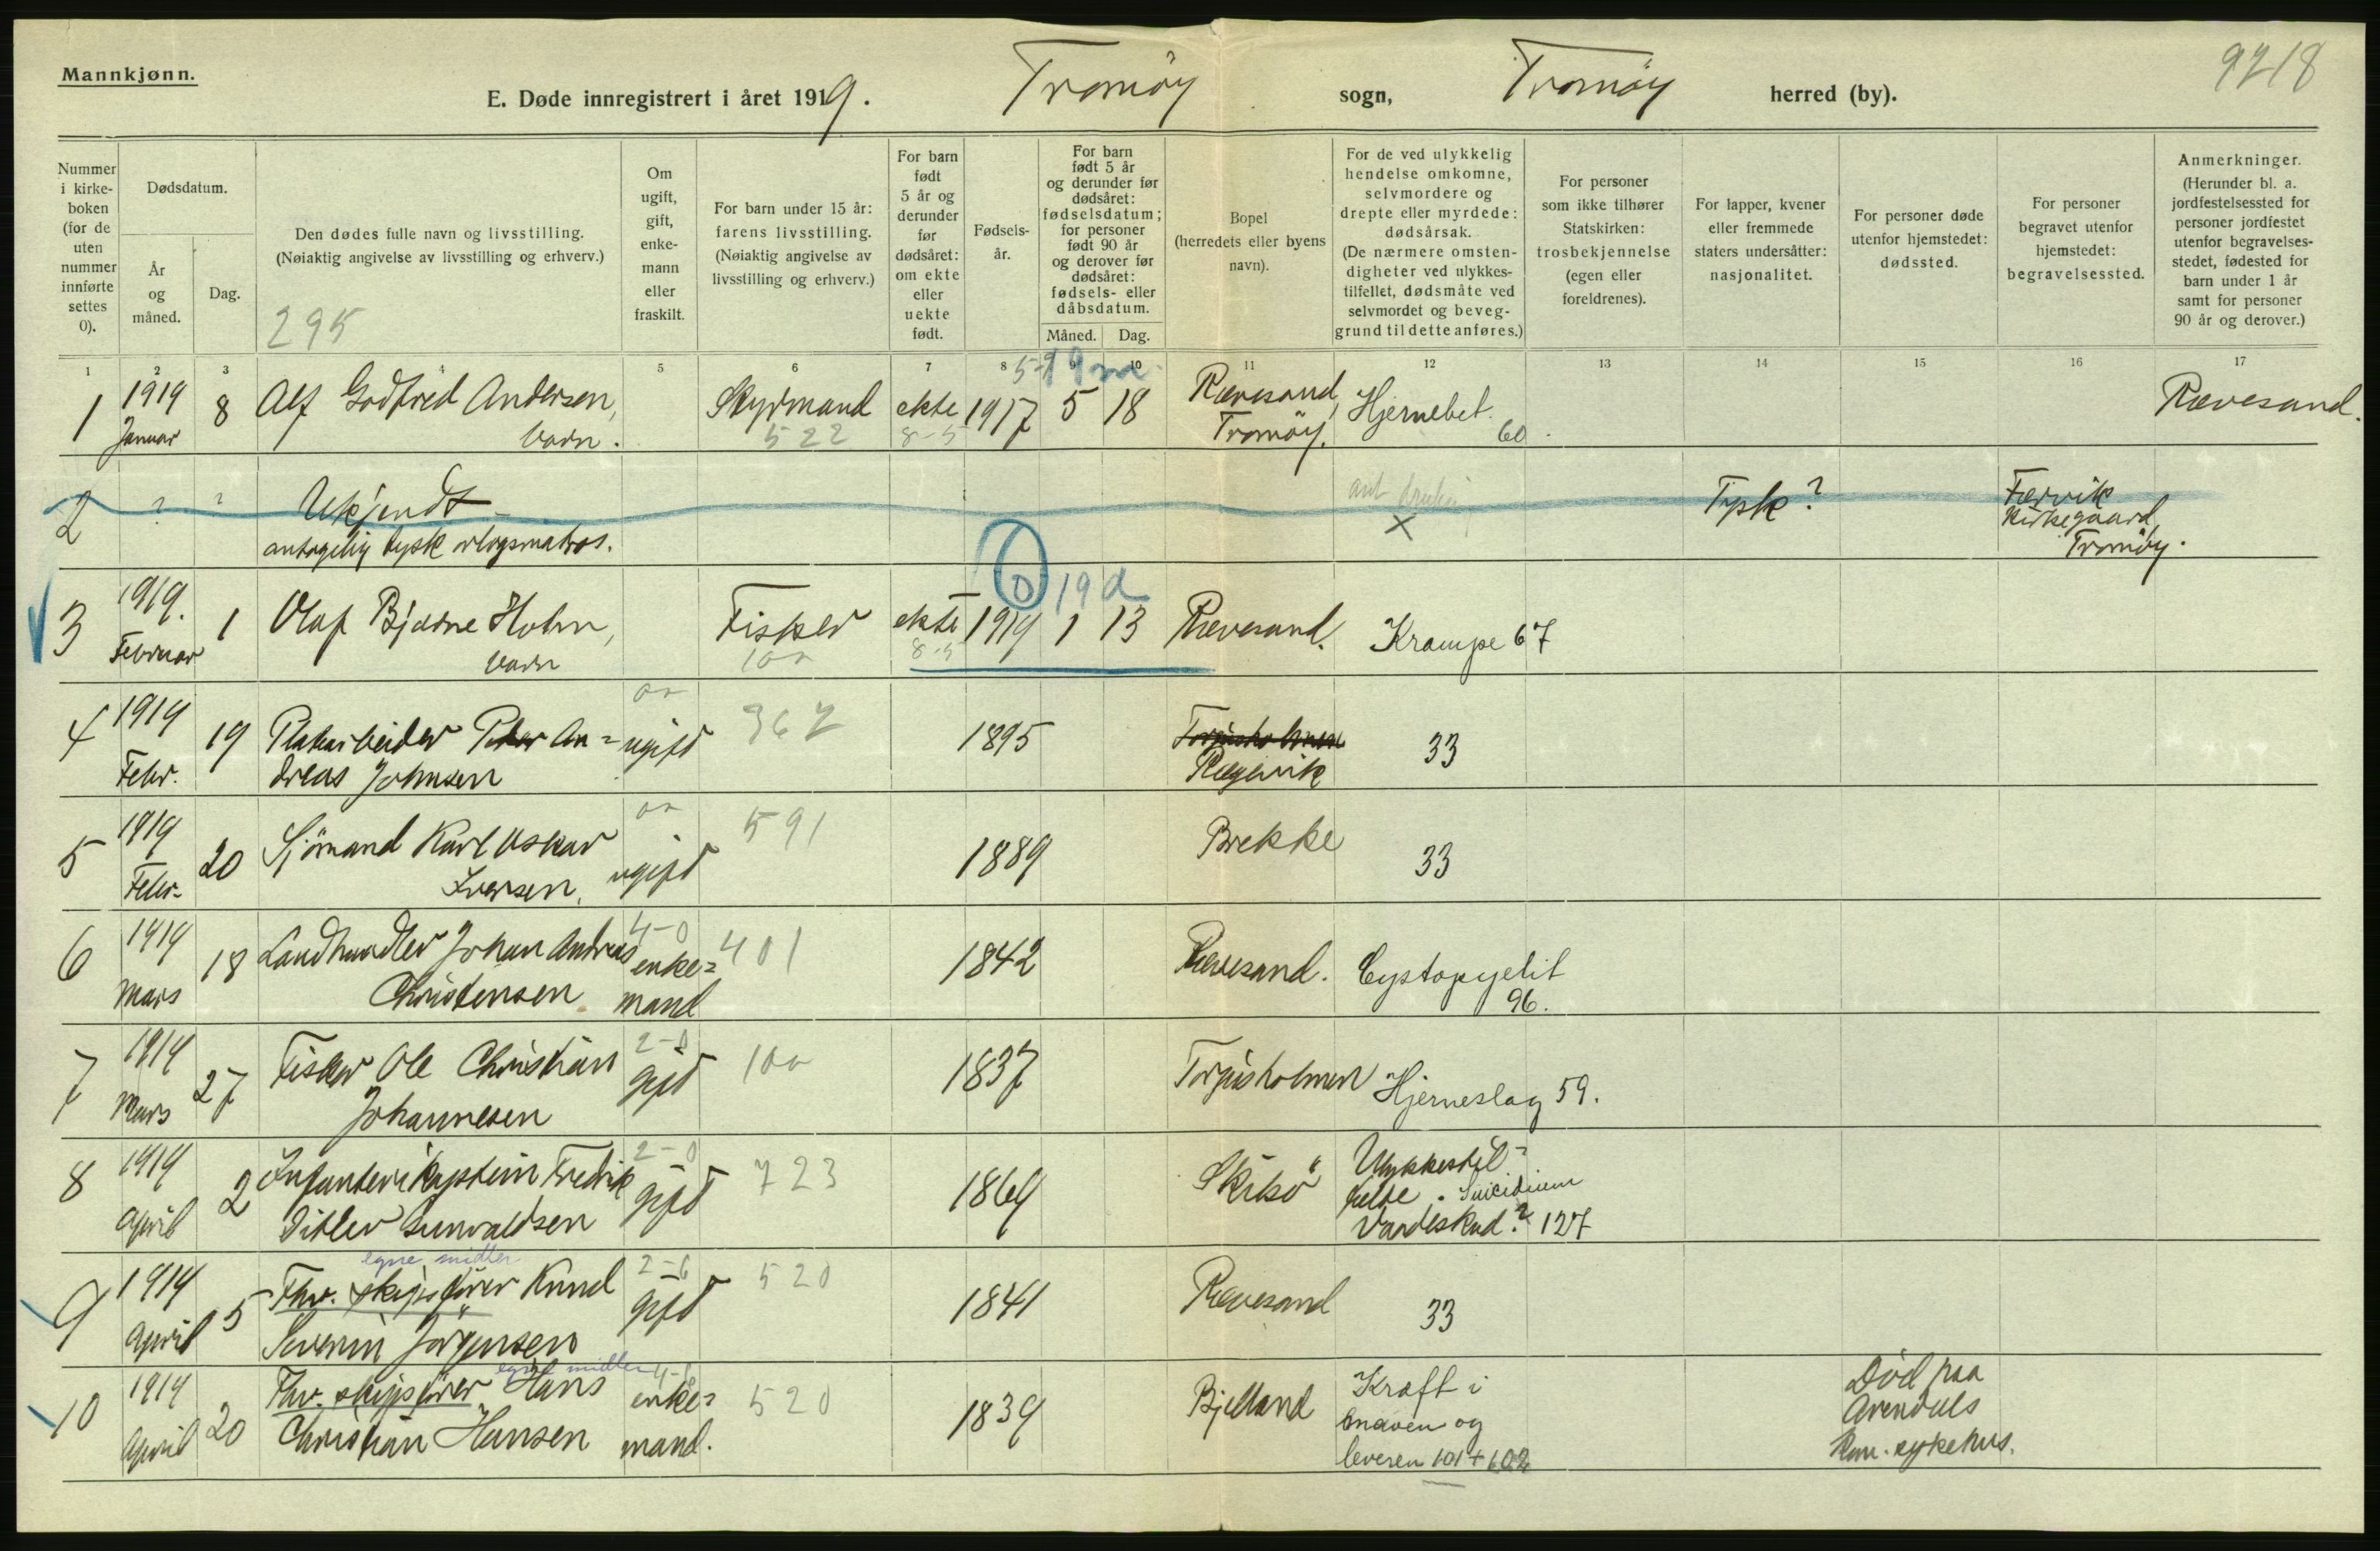 Mannkjønn.
E. Døde innregistrert i året 1919. Tromöy sogn, Tromöy herred (by).
9218
Nummer i kirke-boken (for de uten nummer innførte settes 0).
Dødsdatum.
År og måned.
Dag.
Den dødes fulle navn og livsstilling.
(Nøiaktig angivelse av livsstilling og erhverv.)
295
Om ugift, gift, enke-mann eller fraskilt.
For barn under 15 år: farens livsstilling. (Nøiaktig angivelse av livsstilling og erhverv.)
For barn født 5 år og derunder før dødsåret: om ekte eller uekte født.
Fødsels-år.
For barn født 5 år og derunder før dødsåret: fødselsdatum; for personer født 90 år og derover før dødsåret: fødsels- eller dåbsdatum.
Måned. Dag.
Bopel (herredets eller byens navn).
For de ved ulykkelig hendelse omkomne, selvmordere og drepte eller myrdede: dødsårsak. (De nærmere omsten-digheter ved ulykkes-tilfellet, dødsmåte ved selvmordet og beveg-grund til dette anføres.)
For personer som ikke tilhører Statskirken: trosbekjennelse (egen eller foreldrenes).
For lapper, kvener eller fremmede staters undersåtter: nasjonalitet.
For personer døde utenfor hjemstedet: dødssted.
For personer begravet utenfor hjemstedet: begravelsessted.
Anmerkninger. (Herunder bl. a. jordfestelsessted for personer jordfestet utenfor begravelses-stedet, fødested for barn under 1 år samt for personer 90 år og derover.)
1 2 3 4 5 6 7 8 9 10 11 12 13 14 15 16 17
1 1919 Januar 8 Alf Godfred Andersen, barn. Styrmand 522 ekte 8-5 1917 5 18 Rævesand, Tromöy. Hjernebet. 60. Rævesand.
2 ? ? Ukjendt - antagelig tysk orlogsmatros. X Tysk? Færvik Kirkegaard, Tromöy.
0 19 d
3 1919. Februar 1 Olaf Bjarne Holm, barn Fisker 100 ekte 8-5 1919 1 13 Rævesand. Krampe 67
4 1919 Febr. 19 Platearbeider Peder An=dreas Johnsen ugift 1895 Torjusholmen Rægevik 33
5 1919 Febr. 20 Sjömand Karl Oskar Iversen, ugift 591 1889 Brekke 33
6 1919 Mars 18 Landhandler Johan Andreas Christensen 4-0 enke=mand 401 1842 Rævesand. Cystopyelit 96.
7 1919 Mars 27 Fisker Ole Christian Johannesen 2-0 gift 100 1837 Torjusholmen Hjerneslag 59.
8 1919 April 2 Infanterikaptein Fredrik Ditlev Gunvaldsen 2-0 gift 723 1869 Skibö Ulykkestil=fælde. Suicidium Vaadeskud? 127
egne midler
9 1919 April 5 Fhv. skipsfører Knud Severin Jørgensen 2-6 gift 520 1841 Rævesand 33
egne midler
10 1919 April 20 Fhv. skipsfører Hans Christian Hansen enke=mand. 520 1839 Bjelland Kræft i maven og leveren 101+102 Död paa Arendals Kom. sykehus.